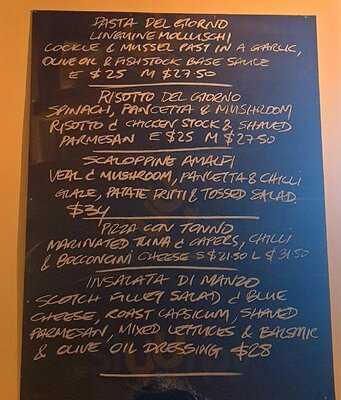 PASTA DEL GIORNO
LINGUINE MOLLUSCHI
COCKLE & MUSSEL PAST IN A GARLIC,
OLIVE OIL & FISHSTOCK BASE SAUCE
E $25 M $27.50
RISOTTO DEL GIORNO
SPINACH, PANCETTA & MUSHROOM
RISOTTO & CHICKEN STOCK & SHAVED
PARMESAN E $25 M $27.50
SCALOPPINE AMALFI
VEAL & MUSHROOM, PANCETTA & CHILLI
GLAZE, PATATE FRITTI & TOSSED SALAD.
$34
PIZZA CON TONNO
MARINATED TUNA & CAPERS, CHILLI
& BOCCONCINI CHEESE S $21.50 L $31.50
INSALATA DI MANZO
SCOTCH FILLET SALAD & BLUE
CHEESE, ROAST CAPSICUM, SHAVED
PARMESAN, MIXED LETTUCES & BALSMIC
& OLIVE OIL DRESSING $28